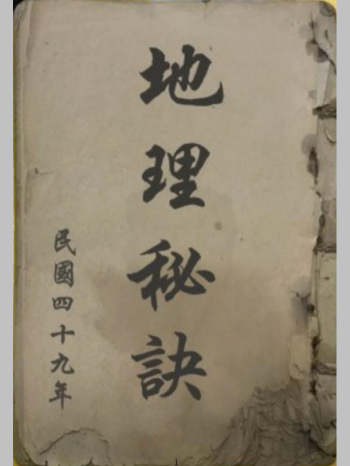 地理秘訣
民國四十九年